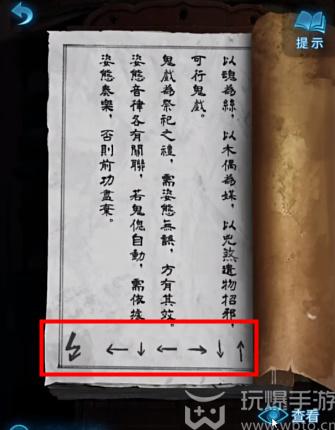 提示
以魂為絲，以木偶為媒，以兇煞遺物招邪，
可行鬼戲。
鬼戲為祭祀之禮，需姿態無誤，方有其效。
姿態音律各有關聯，若鬼傀自動，需依據
姿態奏樂，否則前功盡棄。
↑↓→←↓←
查看
玩爆手游
www.wbto.cc